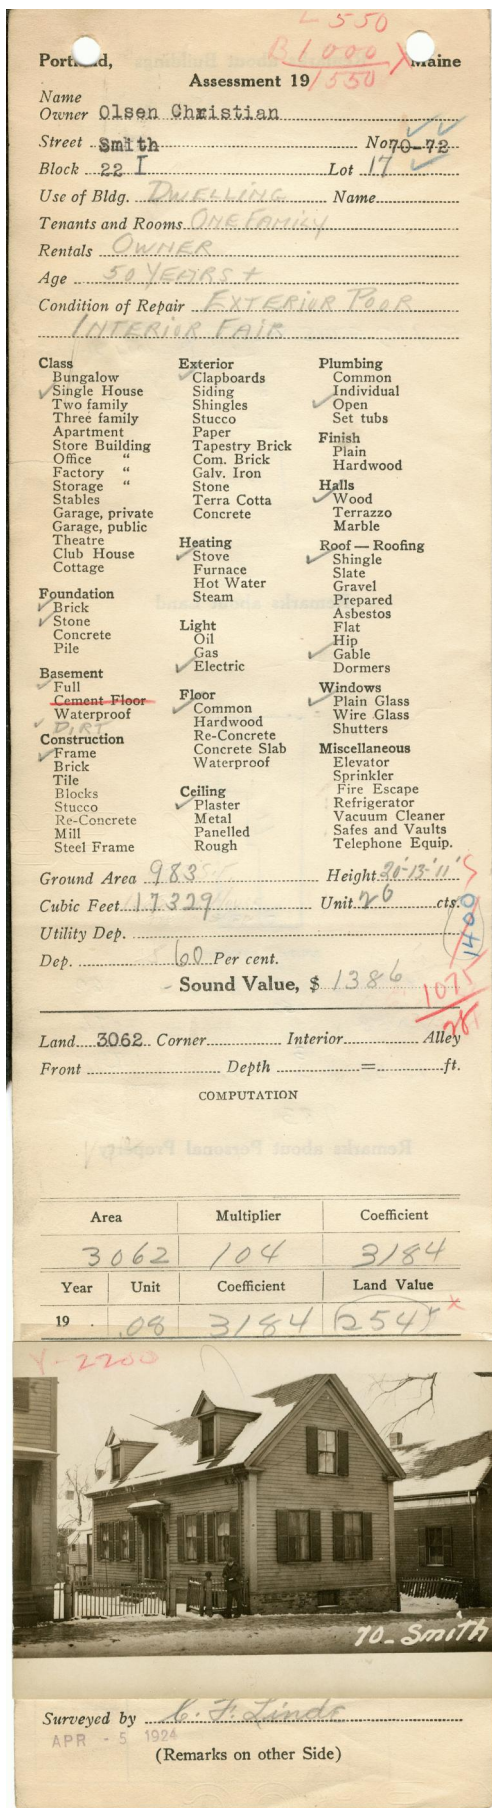 L 550
B 1000 X
1550
Portland, Maine
Assessment 19
Name
Owner Olsen Christian
Street Smith No 70-72
Block 22 I Lot 17
Use of Bldg. DWELLING Name
Tenants and Rooms ONE FAMILY
Rentals OWNER
Age 50 YEARS +
Condition of Repair EXTERIOR POOR
INTERIOR FAIR
Class
Bungalow
Single House
Two family
Three family
Apartment
Store Building
Office "
Factory "
Storage "
Stables
Garage, private
Garage, public
Theatre
Club House
Cottage
Foundation
Brick
Stone
Concrete
Pile
Basement
Full
Cement Floor
Waterproof
DIRT
Construction
Frame
Brick
Tile
Blocks
Stucco
Re-Concrete
Mill
Steel Frame
Exterior
Clapboards
Siding
Shingles
Stucco
Paper
Tapestry Brick
Com. Brick
Galv. Iron
Stone
Terra Cotta
Concrete
Heating
Stove
Furnace
Hot Water
Steam
Light
Oil
Gas
Electric
Floor
Common
Hardwood
Re-Concrete
Concrete Slab
Waterproof
Ceiling
Plaster
Metal
Panelled
Rough
Plumbing
Common
Individual
Open
Set tubs
Finish
Plain
Hardwood
Halls
Wood
Terrazzo
Marble
Roof — Roofing
Shingle
Slate
Gravel
Prepared
Asbestos
Flat
Hip
Gable
Dormers
Windows
Plain Glass
Wire Glass
Shutters
Miscellaneous
Elevator
Sprinkler
Fire Escape
Refrigerator
Vacuum Cleaner
Safes and Vaults
Telephone Equip.
Ground Area 983 Height 20'-13'-11'
Cubic Feet 17329 Unit 26 cts.
1400
Utility Dep.
Dep. 60 Per cent.
Sound Value, $ 1386
1075
Land 3062 Corner Interior Alley
Front Depth = ft.
COMPUTATION
Area Multiplier Coefficient
3062 104 3184
Year Unit Coefficient Land Value
19 .08 3184 254 x
Y-2200
70-Smith
Surveyed by C. F. Linds
APR - 5 1924
(Remarks on other Side)